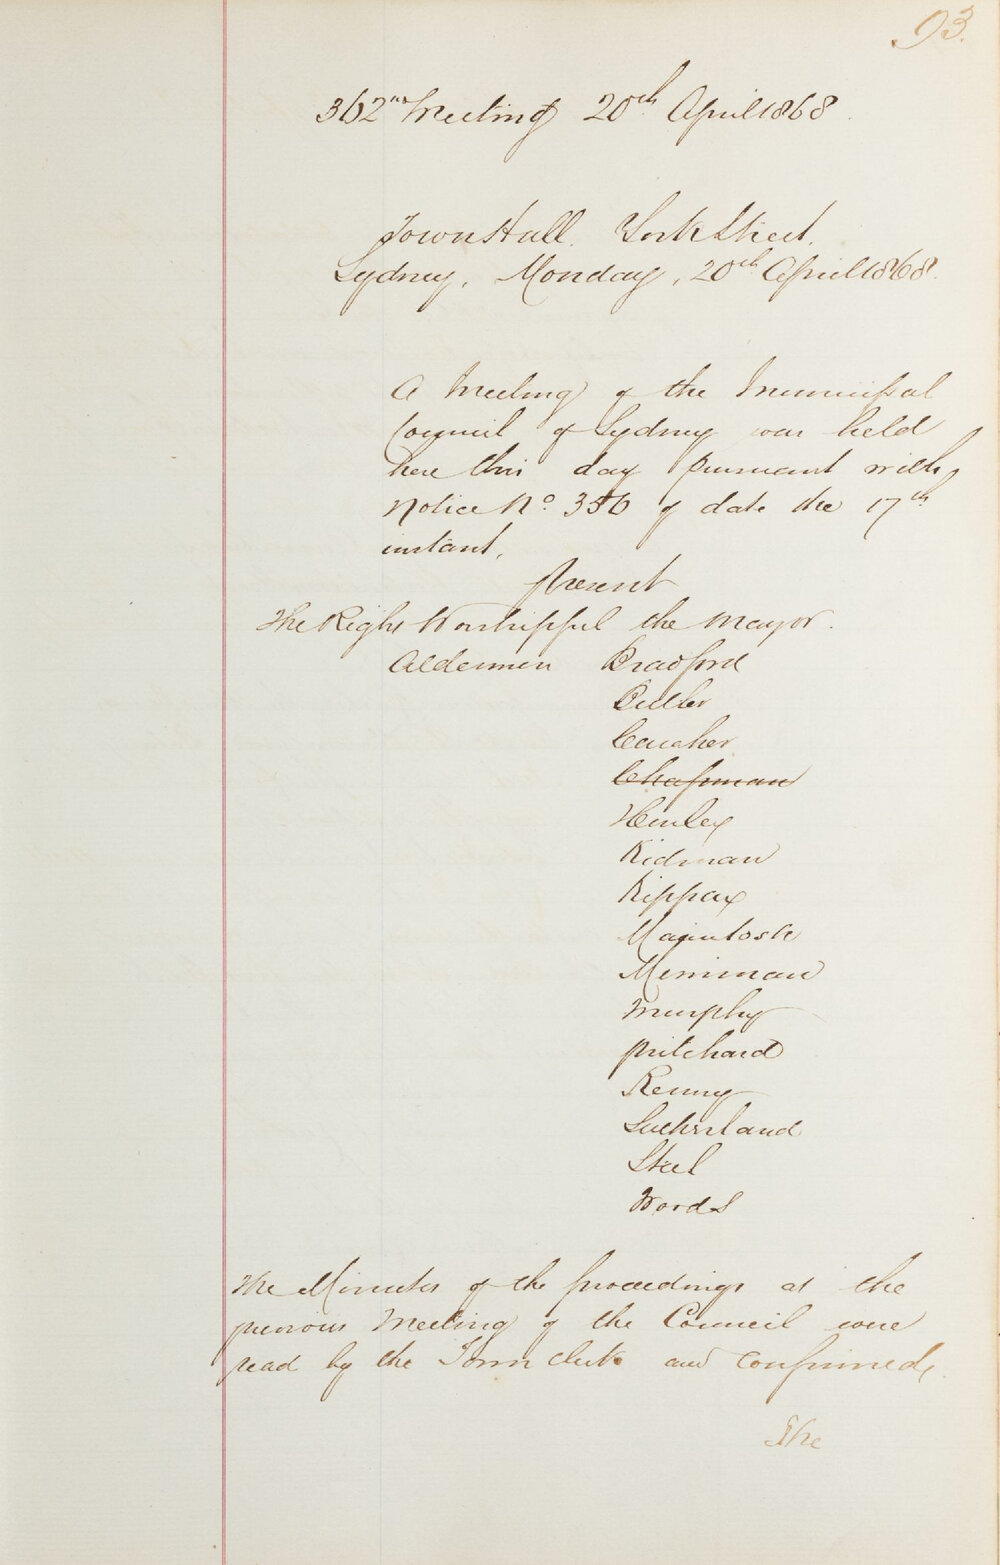 93.
362nd Meeting 20th April 1868.
Town Hall. York Street.
Sydney, Monday, 20th April 1868.
A Meeting of the Municipal
Council of Sydney was held
here this day pursuant with
Notice No. 356 of date the 17th
instant.
Present
The Right Worshipful the Mayor.
Aldermen Bradford
Butler
Caraher
Chapman
Henley
Kidman
Kippax
Macintosh
Merriman
Murphy
Pritchard
Renny
Sutherland
Steel
Woods
The Minutes of the proceedings at the
previous Meeting of the Council were
read by the Town Clerk and confirmed.
The